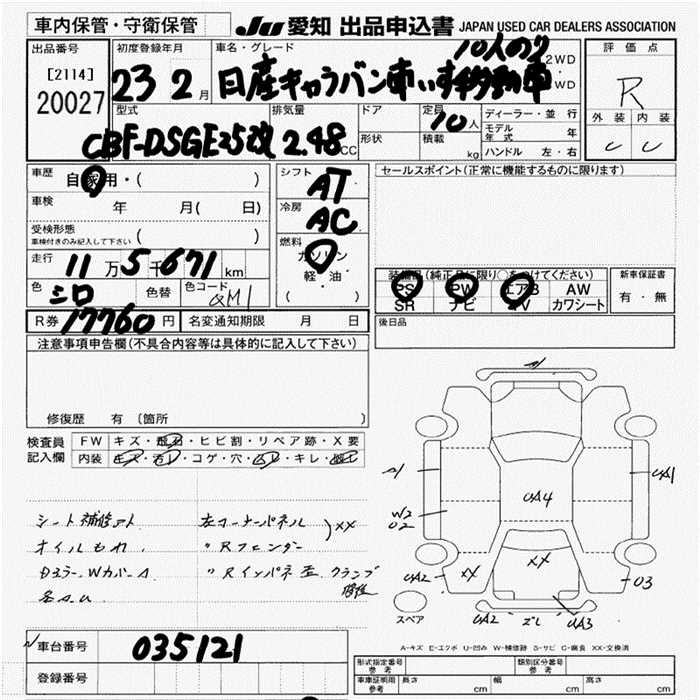 車内保管・守衛保管
JU 愛知 出品申込書 JAPAN USED CAR DEALERS ASSOCIATION
出品番号
[2114]
20027
初度登録年月
23 2月
車名・グレード
10人のり
日産キャラバン車いす移動車
2WD
・
WD
評価点
R
外装 内装
C C
型式
CBF-DSGE25改
排気量
2.48CC
ドア
形状
定員
10人
積載
kg
ディーラー・並行
モデル年式 年
ハンドル 左・右
車歴
自家用・( )
車検
年 月( 日)
受検形態
車検付きのみ記入して下さい ( )
走行
11万5千671km
色
シロ
色替
色コード
QM1
シフト
AT
冷房
AC
燃料
ガソリン
軽・油
( )
R券 17760円
名変通知期限 月 日
セールスポイント(正常に機能するものに限ります)
装備品(純正品に限り○をつけてください)
PS PW エアB AW
SR ナビ TV カワシート
新車保証書
有・無
後日品
注意事項申告欄(不具合内容等は具体的に記入して下さい)
修復歴 有 〔箇所
検査員記入欄
FW キズ・飛石・ヒビ割・リペア跡・X要
内装 キズ・汚レ・コゲ・穴・ムレ・キレ・
シート補修アト
オイルもれ
左コーナーパネル
〃Rフェンダー
)XX
〃Rインパネ歪 クランプ
A1
A1
W2
U2
UA1
UA4
UA2
XX
XX
U3
UA2
ズレ
UA3
スペア
A-キズ E-エクボ U-凹み W-補修跡 S-サビ C-腐食 XX-交換済
車台番号 035121
登録番号
形式指定番号 参考
類別区分番号 参考
車庫証明用 参考
長さ cm
幅 cm
高さ cm